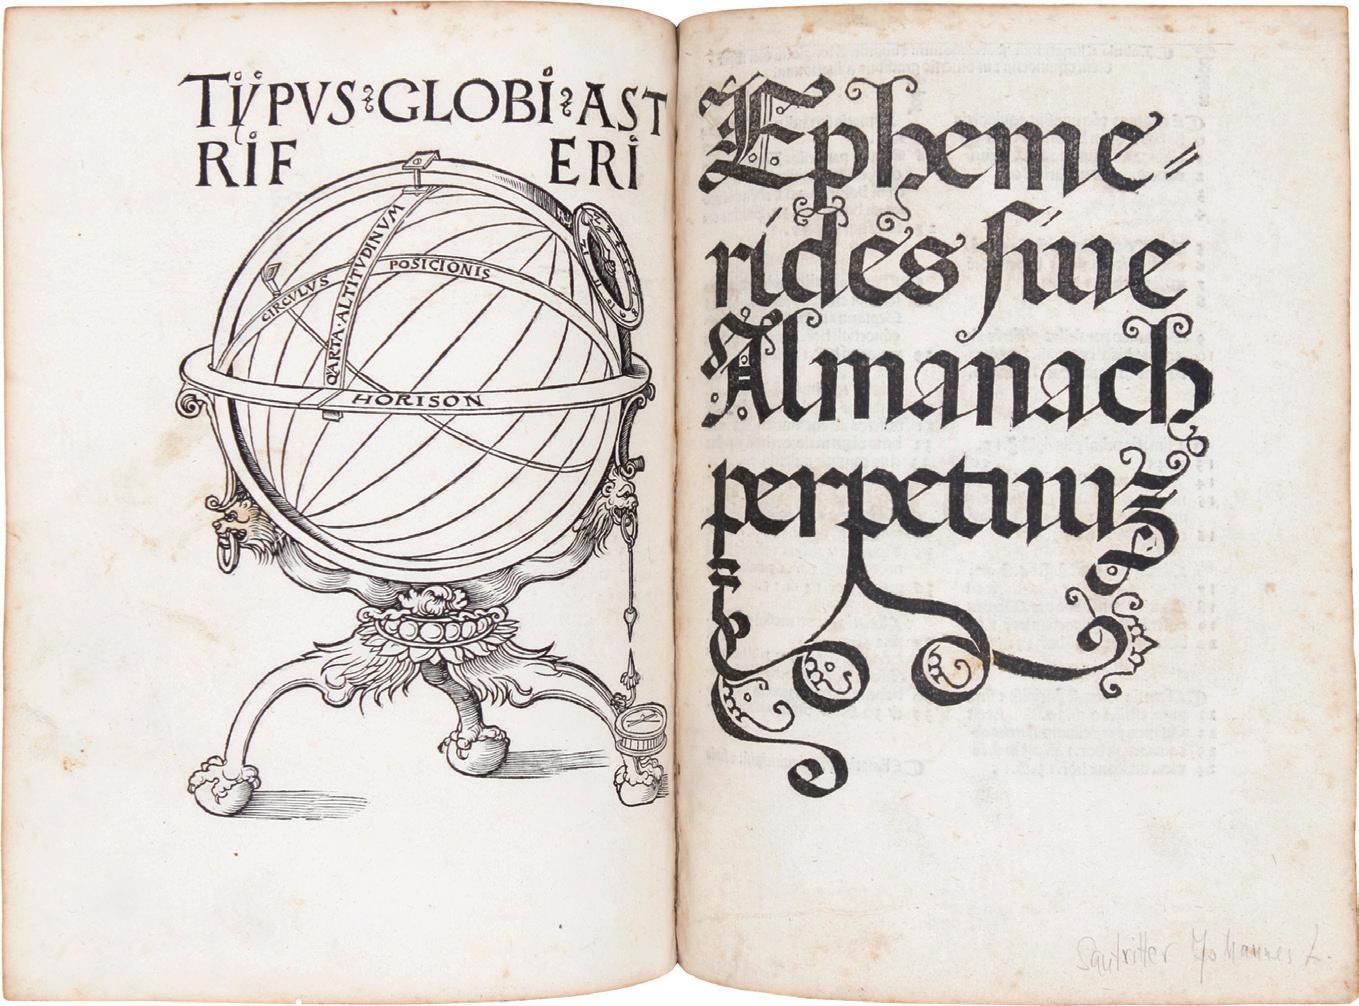 TÿPVS GLOBI AST
RIF ERI
CIRCVLVS POSICIONIS
QARTA·ALTITVDINVM
HORISON
Epheme⸗
rides siue
Almanach
perpetuuz
Santritter Johannes L.